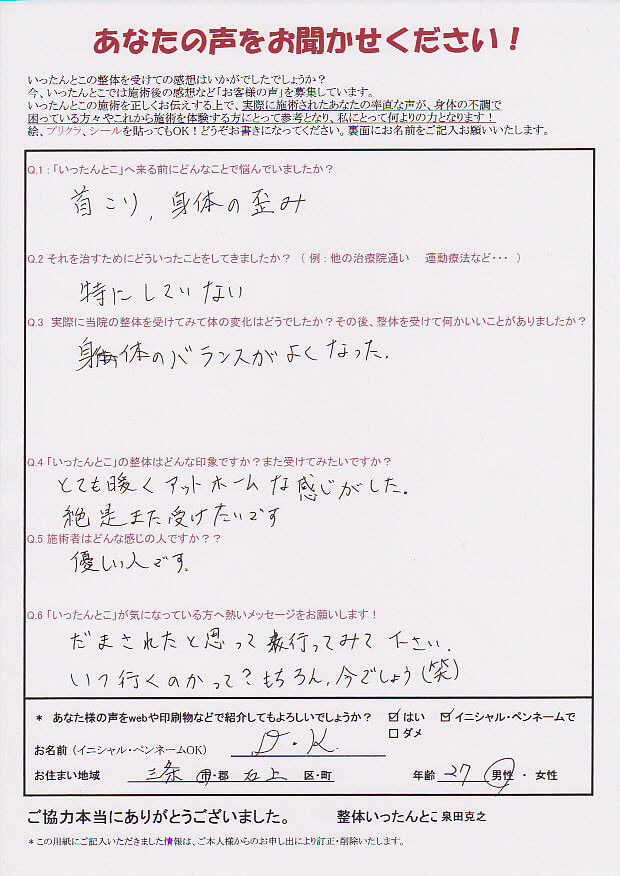 あなたの声をお聞かせください！
いったんとこの整体を受けての感想はいかがでしたでしょうか？
今、いったんとこでは施術後の感想など「お客様の声」を募集しています。
いったんとこの施術を正しくお伝えする上で、実際に施術されたあなたの率直な声が、身体の不調で
困っている方々やこれから施術を体験する方にとって参考となり、私にとって何よりの力となります！
絵、プリクラ、シールを貼ってもOK！どうぞお書きになってください。裏面にお名前をご記入お願いいたします。
Q.1：「いったんとこ」へ来る前にどんなことで悩んでいましたか？
首こり，身体の歪み
Q.2 それを治すためにどういったことをしてきましたか？（例：他の治療院通い　運動療法など・・・　）
特にしていない
Q.3　実際に当院の整体を受けてみて体の変化はどうでしたか？その後、整体を受けて何かいいことがありましたか？
身体のバランスがよくなった．
Q.4「いったんとこ」の整体はどんな印象ですか？また受けてみたいですか？
とても暖くアットホームな感じがした．
絶是また受けたいです
Q.5 施術者はどんな感じの人ですか？？
優しい人です．
Q.6「いったんとこ」が気になっている方へ熱いメッセージをお願いします！
だまされたと思って行ってみて下さい．
いつ行くのかって？もちろん，今でしょう（笑）
＊ あなた様の声をwebや印刷物などで紹介してもよろしいでしょうか？ ☑はい ☑イニシャル・ペンネームで
□ダメ
お名前（イニシャル・ペンネームOK） D・K.
お住まい地域 三条 市・郡 石上 区・町 年齢 27 男性 ・ 女性
ご協力本当にありがとうございました。 整体いったんとこ 泉田克之
＊この用紙にご記入いただきました情報は、ご本人様からのお申し出により訂正・削除いたします。